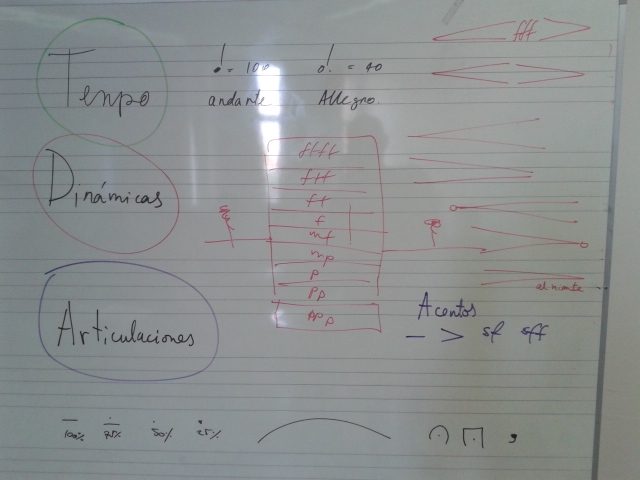 Tempo
= 100
= 40
andante
Allegro.
fff
Dinámicas
ffff
fff
ff
f
mf
mp
p
pp
ppp
al niente
Articulaciones
Acentos
— > sf sff
100% 75% 50% 25%